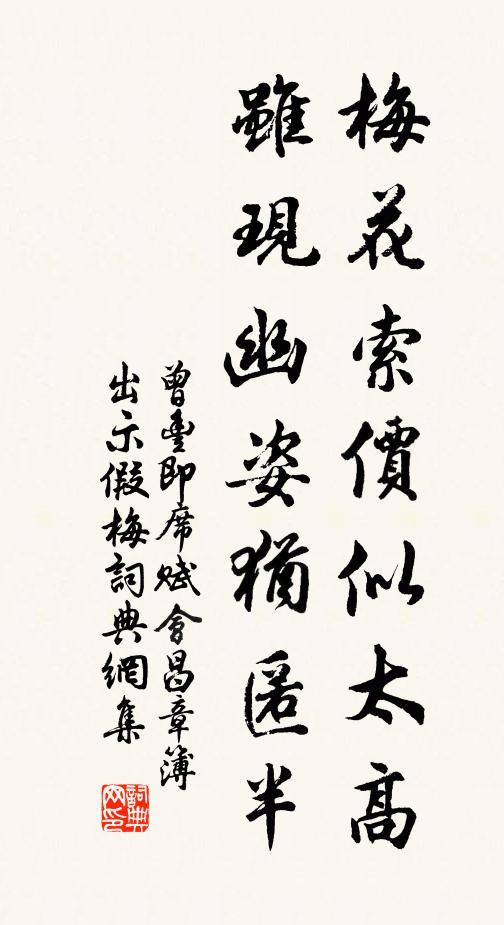 梅花索價似太高
雖現幽姿猶匿半
曾豐即席賦會昌章簿
出示假梅詞典網集
詞典网印